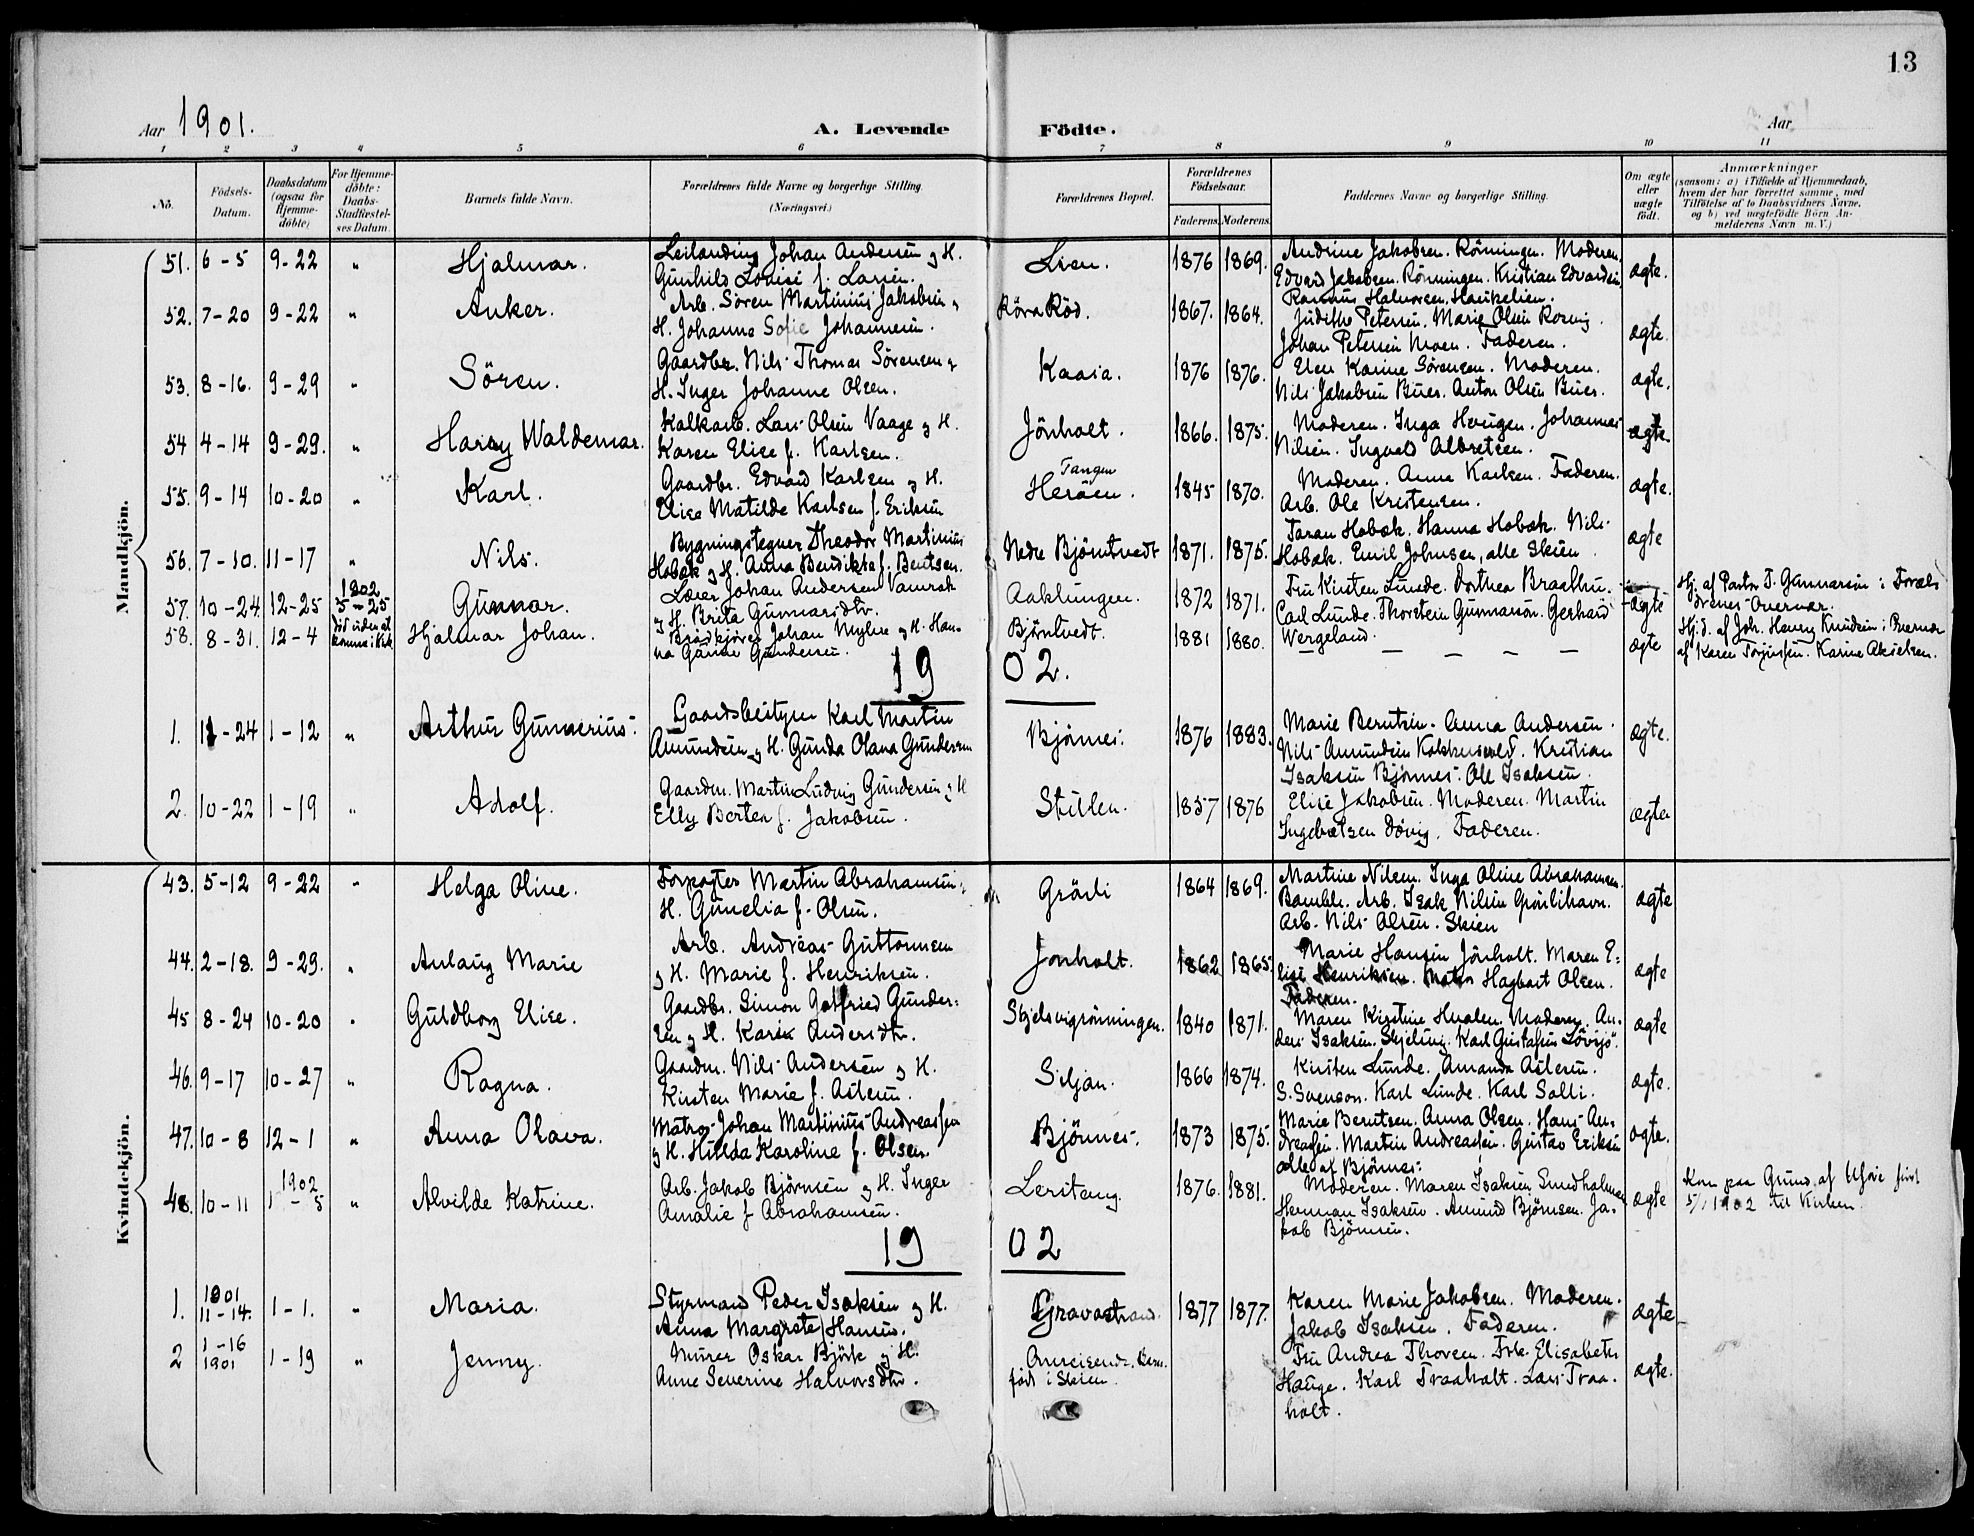 13
Aar 1901.
A. Levende Födte.
Aar
1 2 3 4 5 6 7 8 9 10 11
Nö.
Födsels-Datum.
Daabsdatum (ogsaa for Hjemmedöbte)
For Hjemmedöbte: Daabs-Stadfæstelses Datum.
Barnets fulde Navn.
Forældrenes fulde Navne og borgerlige Stilling. (Næringsvei.)
Forældrenes Bopæl.
Forældrenes Födselsaar.
Faderens. Moderens.
Faddernes Navne og borgerlige Stilling.
Om ægte eller uægte födt.
Anmærkninger
(saasom: a) i Tilfælde af Hjemmedaab, hvem der har forrettet samme, med Tilföielse af to Daabsvidners Navne, og b) ved uægtefödte Börn Anmelderens Navn m. V.)
Mandkjön.
51. 6-5 9-22 " Hjalmar. Leilending Johan Andersen og H. Gunhild Lovise f. Larsen. Lien. 1876 1869. Andrine Jakobsen. Rönningen. Moderen. Edvard Jakobsen. Rönningen. Kristian Edvardsen, Rasmus Halvorsen. ægte.
52. 7-20 9-22 " Anker. Arb. Sören Martinius Jakobsen og H. Johanne Sofie Johannesen. Röra Röd. 1867. 1864. Judithe Petersen. Marie Olsen Rosvig. Johan Petersen Moen. Faderen. ægte.
53. 8-16. 9-29 " Sören. Gaardbr. Nils Thomas Sörensen og H. Inger Johanne Olsen. Kaasa. 1876 1876. Elen Karine Sörensen. Moderen. Nils Jakobsen Buer. Anton Olsen Buer. ægte.
54 4-14 9-29. " Harry Waldemar. Kalkarb. Lars Olsen Vaage og H. Karen Elise f. Karlsen. Jönholt. 1866. 1875. Moderen. Inga Haugen. Johannes Nilsen. Ingvald Albretsen. ægte
55. 9-14 10-20 " Karl. Gaardbr. Edvard Karlsen og H. Elise Matilde Karlsen f. Eriksen Tangen Heröen. 1845 1870. Moderen. Anne Karlsen. Faderen. Arb. Ole Kristensen. ægte.
56. 7-10. 11-17 " Nils. Bygningstegner Theodor Martinius Hobæk og H. Anna Bendikte f. Bentsen. Nedre Bjöntvedt 1871. 1875. Taran Hobæk. Hanna Hobæk. Nils Hobæk. Emil Johnsen, alle Skien. ægte
57. 10-24. 12-25 1902 5-25 Gunnar. Lærer Johan Andersen Vamråk og H. Brita Gunnarsdtr. Aaklungen. 1872 1871. Fru Kirsten Lunde. Dorthea Braathu. Carl Lunde. Thorstein Gunnarson. Gerhard Wergeland. ægte Hj. af Pastor T. Gunnarson i Forældrenes Overvær.
58. 8-31. 12-4 död uden at komme i Kirk. Hjalmar Johan. Brödkjörer Johan Myhre og H. Hanna Gurine Gundersen. Bjöntvedt. 1881 1880. — — — — — ægte Hj.d. af Joh. Henry Knudsen i Overvær af Karen Torjusen. Karine Akselsen.
1902.
1. 11-24 1-12 " Arthur Gunnerius. Gaardsbestyrer Karl Martin Amundsen og H. Gunda Olava Gundersen Bjönnes. 1876 1883. Marie Berntsen. Anna Andersen. Nils Amundsen Kokkersvold. Kristian Isaksen Bjönnes. Ole Isaksen. ægte.
2. 10-22 1-19 " Adolf. Gaardm. Martin Ludvig Gundersen og H Elly Berten f. Jakobsen. Stillen. 1857 1876 Elise Jakobsen. Moderen. Martin Ingebretsen Dövig. Faderen. ægte
Kvindekjön.
43. 5-12 9-22 " Helga Oline. Forpagter Martin Abrahamsen og H. Gunelia f. Olsen. Gråsli 1864 1869. Martine Nilsen. Inga Oline Abrahamsen. Bamble. Arb. Isak Nilsen Gråslihavn. Arb. Nils Olsen. Skien ægte
44. 2-18. 9-29. " Aslaug Marie Arb. Andreas Guttormsen og H. Marie f. Henriksen. Jönholt. 1862 1865. Marie Hansen Jönholt. Maren Elise Henriksen. Matros Hagbart Olsen. Faderen. ægte
45 8-24 10-20 " Guldborg Elise. Gaardbr. Simon Gotfried Gundersen og H. Karen Andersdtr. Skjelsvigrönningen. 1840 1871. Maren Kirstine Hvalen. Moderen. Anders Isaksen. Skjelsvig. Karl Gustafsen Lövsjö. ægte
46. 9-17 10-27 " Ragna. Gaardm. Nils Andersen og H. Kirsten Marie f. Aslesen. Siljan. 1866 1874. Kirsten Lunde. Amanda Aslesen. S. Svenson. Karl Lunde. Karl Solli. ægte.
47. 10-8 12-1 " Anna Olava. Matros Johan Martinius Andreassen og H. Hilda Karoline f. Olsen Bjönnes. 1873 1875. Marie Berntsen. Anna Olsen. Hans Andreassen. Martin Andreassen. Gustav Eriksen alle af Bjönnes. ægte.
48. 10-11 1902 1-5 " Alvilde Katrine. Arb. Jakob Björnsen og H. Inger Amalie f Abrahamsen. Lerstang. 1876. 1881. Moderen. Maren Isaksen Smedholmen. Herman Isaksen. Amund Björnsen. Jakob Björnsen. ægte Kom paa Grund af Uføre først 5/1 1902 til Kirken.
1902
1. 1901 11-14. 1-1. " Maria. Styrmand Peder Isaksen og H. Anna Margrete Hansen. Gravastrand. 1877 1877. Karen Marie Jakobsen. Moderen. Jakob Isaksen. Faderen. ægte
2 1-16 1901 1-19 " Jenny. Murer Oskar Björk og H. Anne Severine Halvorsdtr. født i Skien. Fru Andrea Thovsen. Frk. Elisabeth Hauge. Karl Traaholt. Lars Traaholt. ægte.